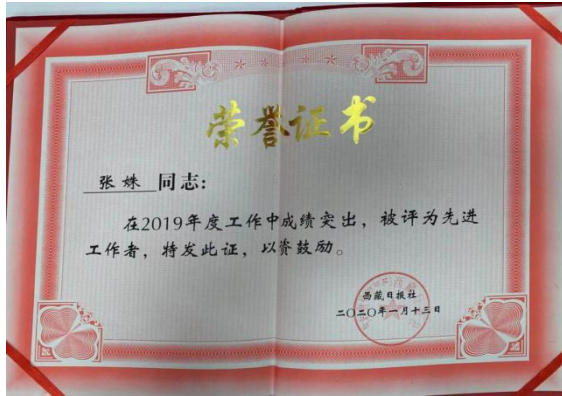 荣誉证书
张姝 同志:
在2019年度工作中成绩突出，被评为先进
工作者，特发此证，以资鼓励。
西藏日报社
二〇二〇年一月十三日